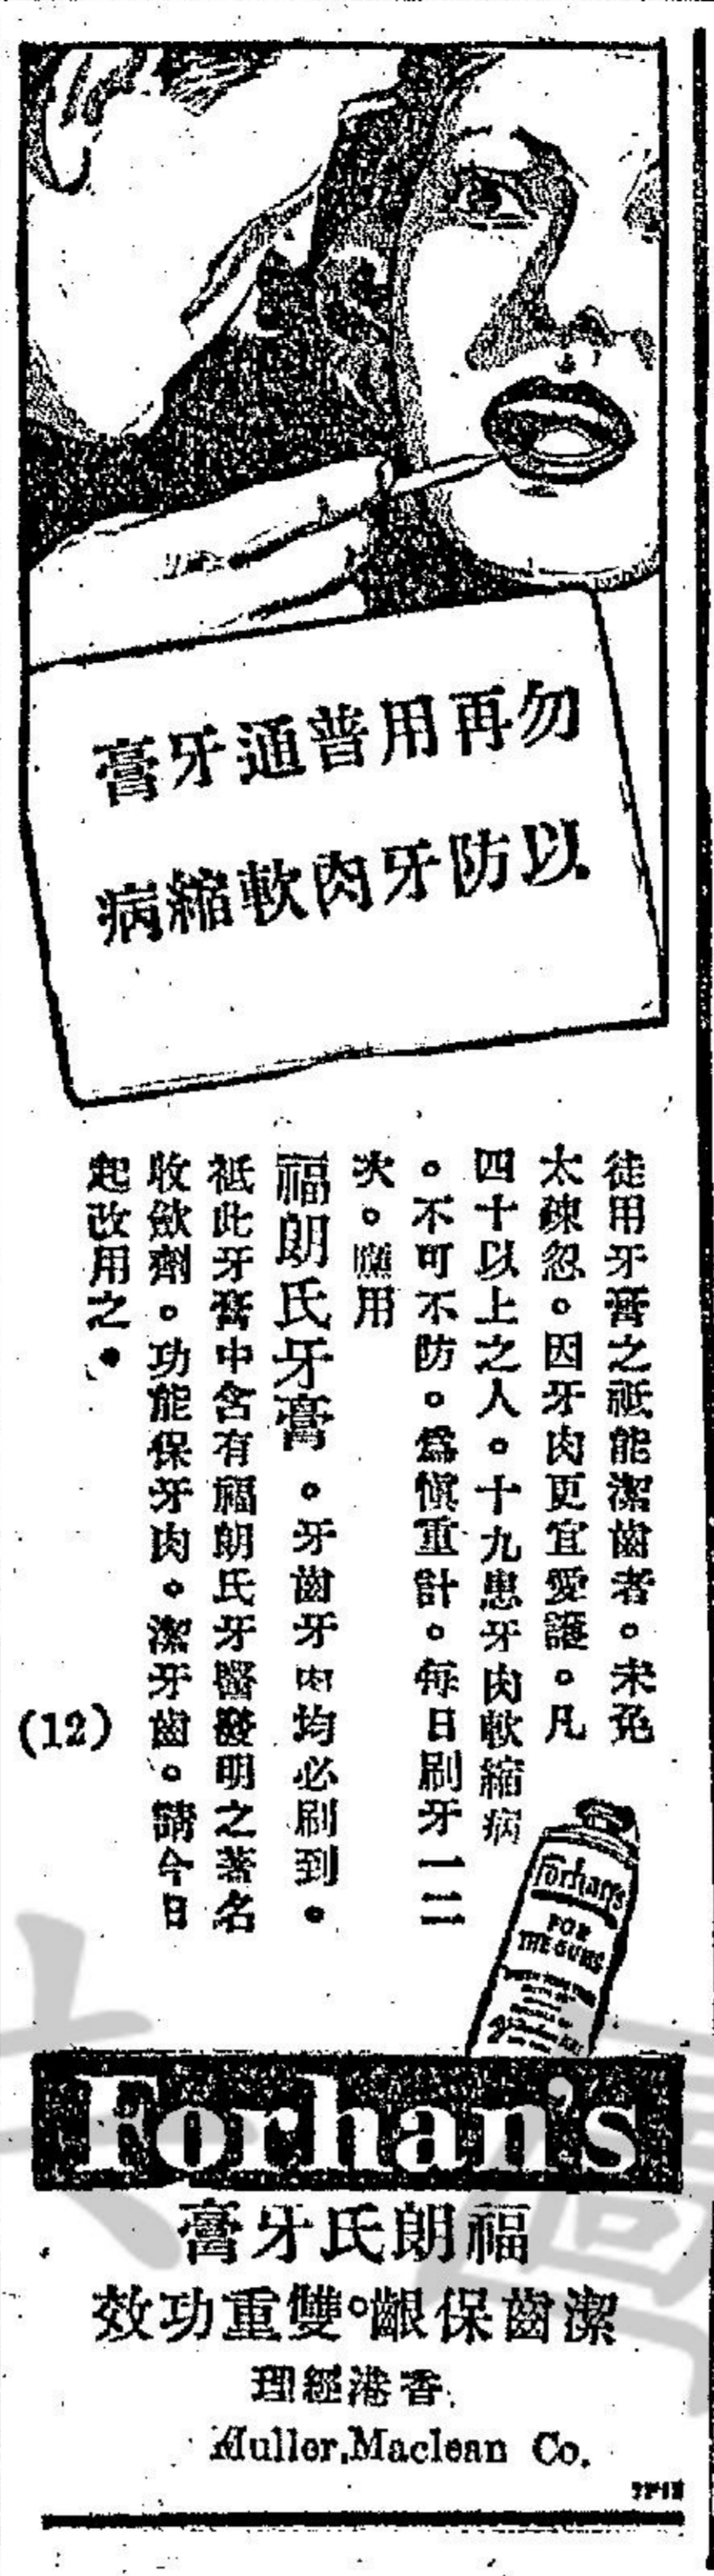 勿再用普通牙膏
以防牙肉軟縮病
徒用牙膏之祗能潔齒者。未免
太疎忽。因牙肉更宜愛護。凡
四十以上之人。十九患牙肉軟縮病
。不可不防。爲愼重計。每日刷牙一二
次。應用
福朗氏牙膏。牙齒牙肉均必刷到。
祗此牙膏中含有福朗氏牙醫發明之著名
收歛劑。功能保牙肉。潔牙齒。請今日
起改用之。
(12)
Forhan's
FOR
THE GUMS
Forhan's
福朗氏牙膏
潔齒保齦。雙重功效
香港經理
Muller, Maclean Co.